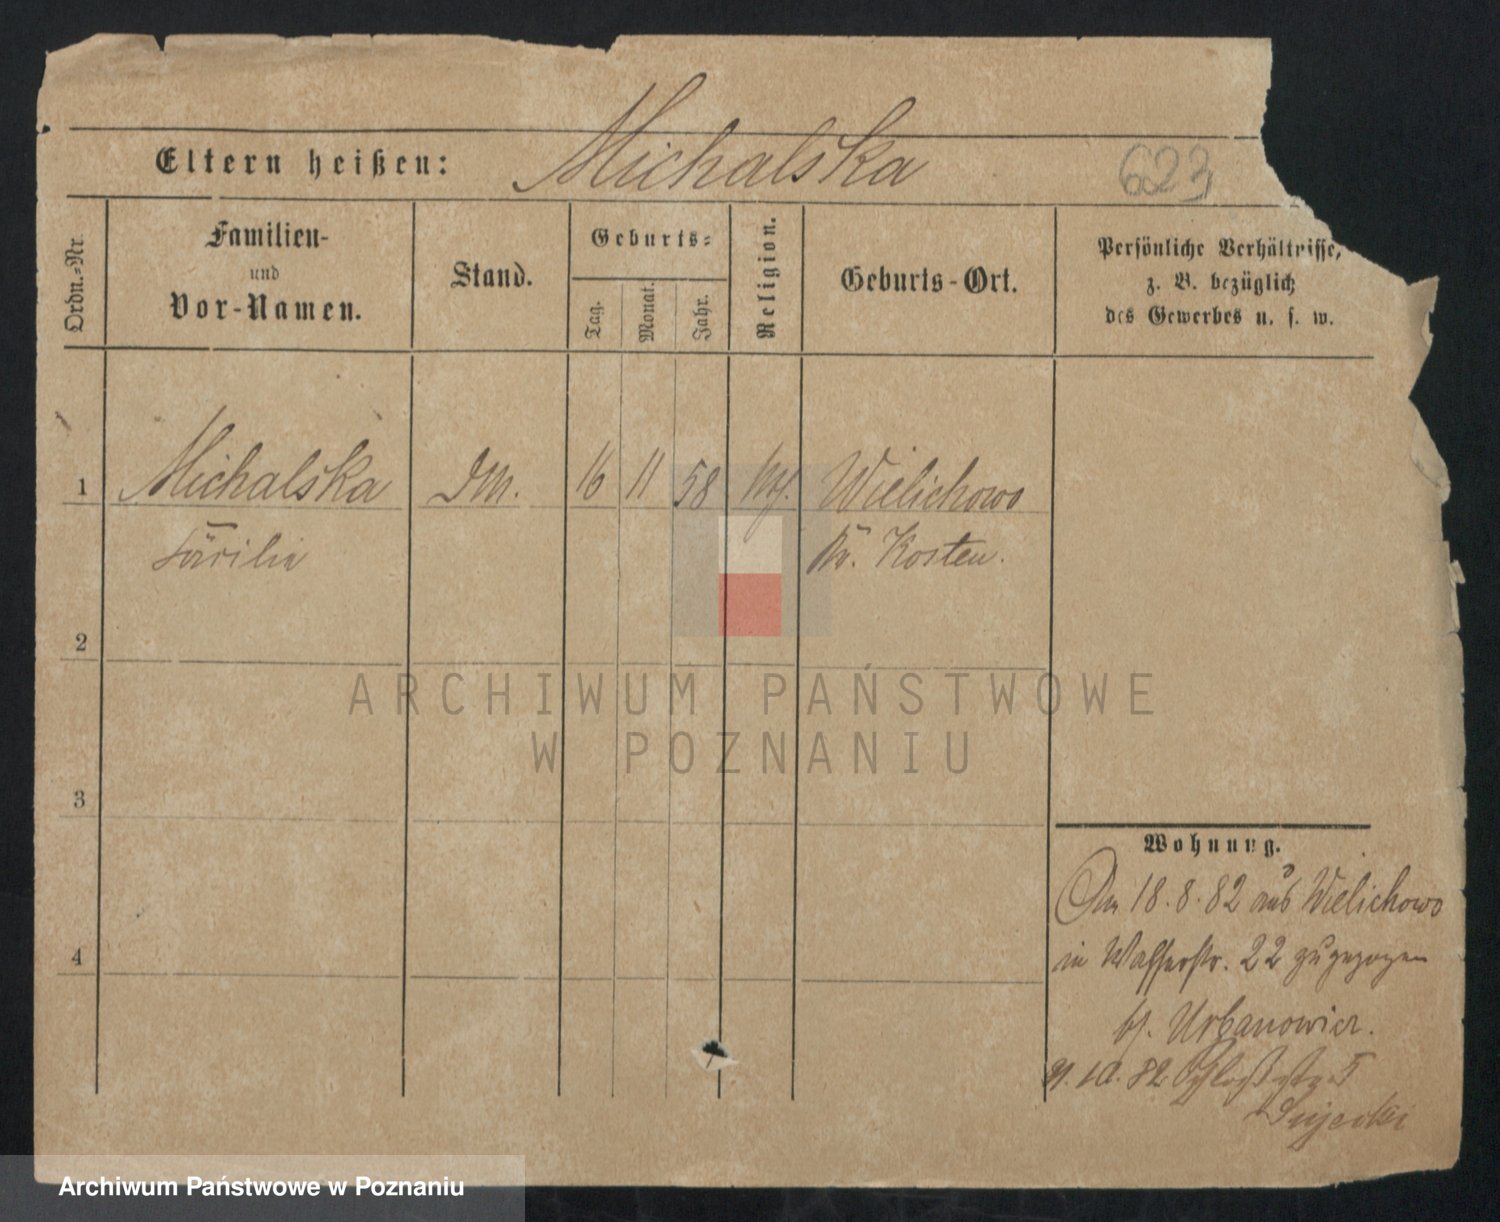 Eltern heißen: Michalska 623
Ordn.-Nr.
Familien-
und
Vor-Namen.
Stand.
Geburts-
Tag.
Monat.
Jahr.
Religion.
Geburts-Ort.
Persönliche Verhältnisse,
z. B. bezüglich
des Gewerbes u. s. w.
1 Michalska DM. 16 11 58 kath. Wielichowo
Kr. Kosten.
2
3
4
Wohnung.
Am 18.8.82 aus Wielichowo
in Wasserstr. 22 zugezogen
bei Urbanowicz.
10. 82 Schloßstr. 5
ARCHIWUM PAŃSTWOWE
W POZNANIU
Archiwum Państwowe w Poznaniu